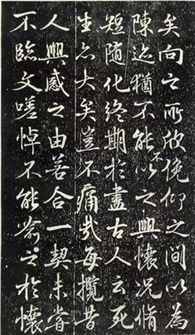 矣向之所欣俛仰之間以為
陳迹猶不能不以之興懷況脩
短随化終期於盡古人云死
生亦大矣豈不痛哉每攬昔
人興感之由若合一契未嘗
不臨文嗟悼不能喻之於懷